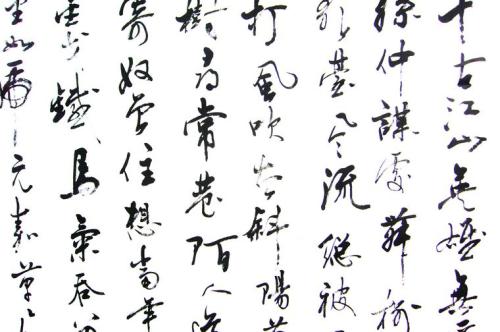 千古江山英雄無
孫仲謀處舞榭
歌臺風流總被
打風吹去斜陽草
樹尋常巷陌人道
寄奴曾住想當年
戈鐵馬氣吞萬
里如虎元嘉草